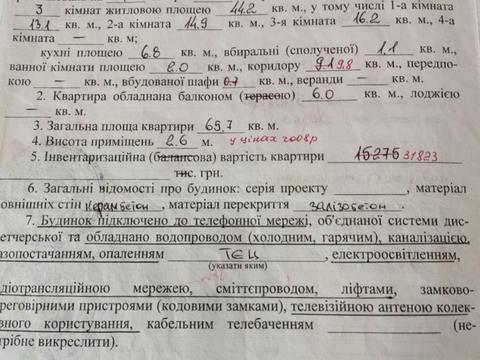 3 кімнат житловою площею 44.2 кв. м., у тому числі 1-а кімната
13.1 кв. м., 2-а кімната 14.9 кв. м., 3-я кімната 16.2 кв. м., 4-а
кімната — кв. м;
кухні площею 6.8 кв. м., вбиральні (сполученої) 1.1 кв. м.,
ванної кімнати площею 2.0 кв. м., коридору 9.1 9.8 кв. м., передпо-
кою — кв. м., вбудованої шафи 0.7 кв. м., веранди — кв. м.
2. Квартира обладнана балконом (терасою) 6.0 кв. м., лоджією
— кв. м.
3. Загальна площа квартири 69.7 кв. м.
4. Висота приміщень 2.6 м. у цінах 2008р
5. Інвентаризаційна (балансова) вартість квартири 15275 31823
тис. грн.
6. Загальні відомості про будинок: серія проекту , матеріал
зовнішніх стін керамбетон, матеріал перекриття залізобетон.
7. Будинок підключено до телефонної мережі, об'єднаної системи дис-
петчерської та обладнано водопроводом (холодним, гарячим), каналізацією,
газопостачанням, опаленням ТЕЦ , електроосвітленням,
(указати яким)
радіотрансляційною мережею, сміттєпроводом, ліфтами, замково-
переговірними пристроями (кодовими замками), телевізійною антеною колек-
тивного користування, кабельним телебаченням (не-
потрібне викреслити).